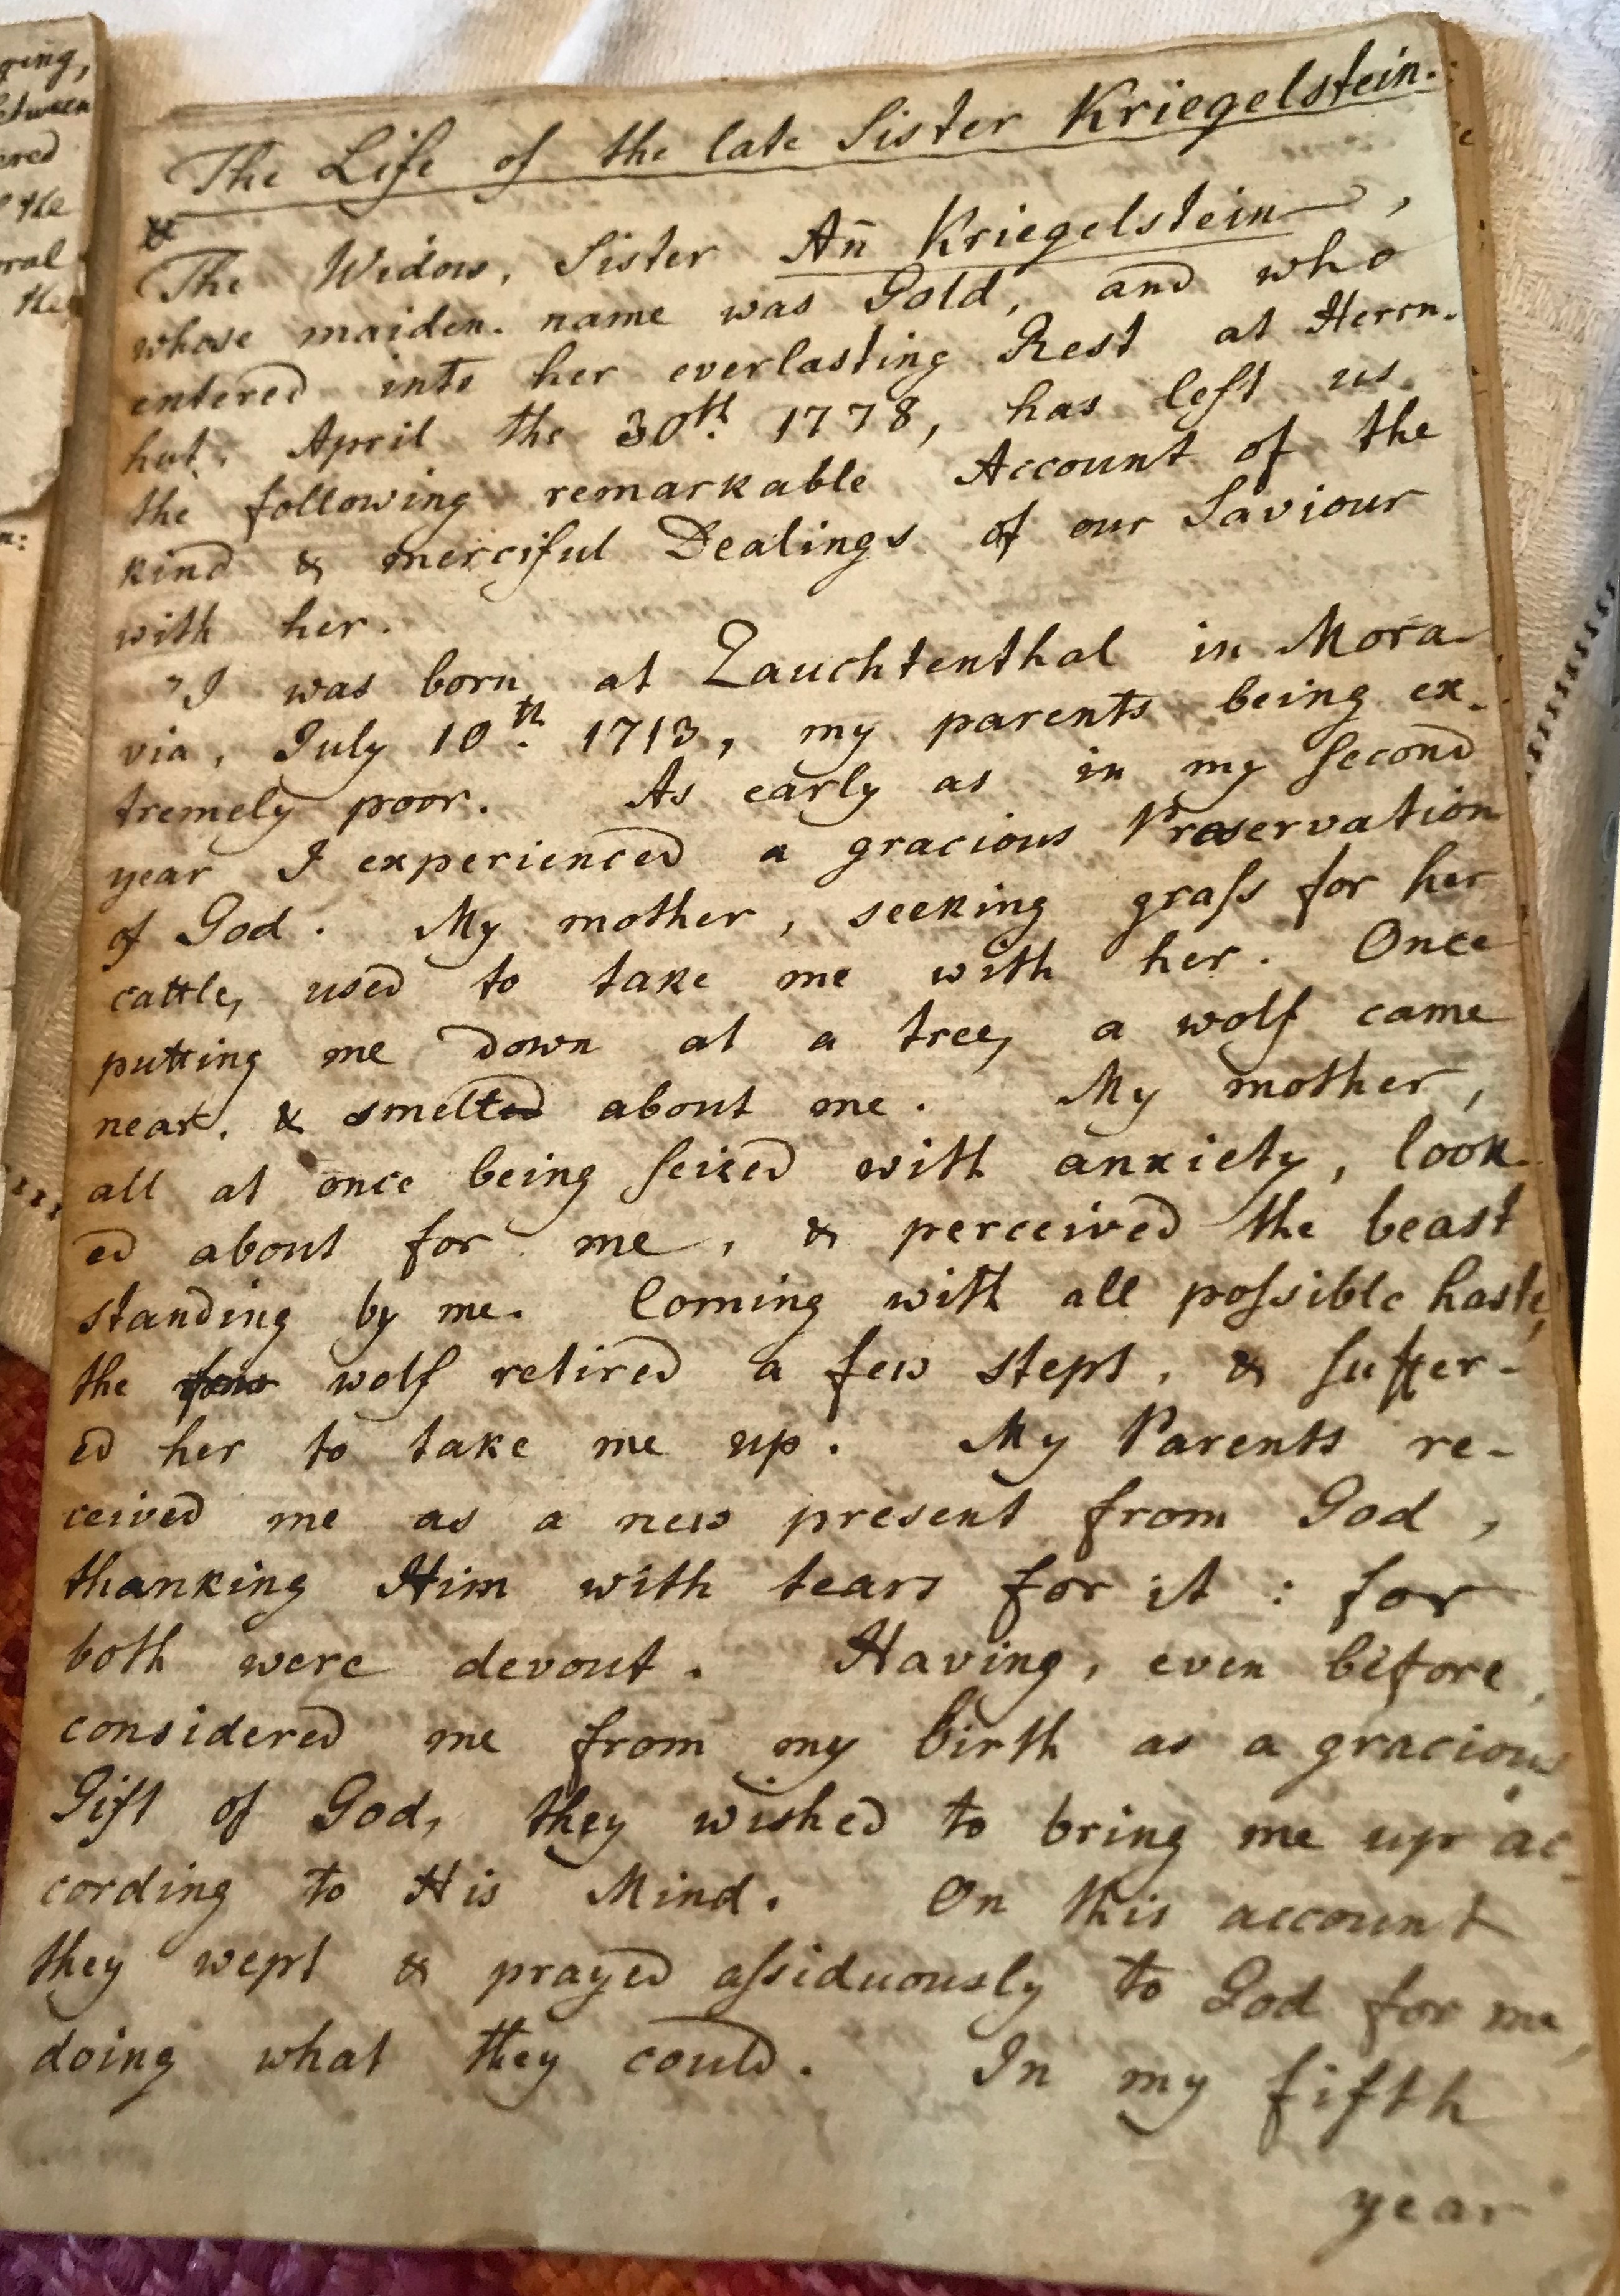 ring,
etween
ered
the
ral
the
The Life of the late Sister Kriegelstein.
The Widow, Sister An̄ Kriegelstein,
whose maiden name was Gold, and who
entered into her everlasting Rest at Herrn-
hut, April the 30th. 1778, has left us
the following remarkable Account of the
kind & merciful Dealings of our Saviour
with her.
"I was born at Zauchtenthal in Mora-
via, July 10th. 1713, my parents being ex-
tremely poor. As early as in my second
year I experienced a gracious Preservation
of God. My mother, seeking graſs for her
cattle, used to take me with her. Once
putting me down at a tree, a wolf came
near, & smelted about me. My mother,
all at once being seized with anxiety, look-
ed about for me, & perceived the beast
standing by me. Coming with all poſsible haste,
the wolf retired a few steps, & suffer-
ed her to take me up. My Parents re-
ceived me as a new present from God,
thanking Him with tears for it: for
both were devout. Having, even before,
considered me from my birth as a gracious
Gift of God, they wished to bring me up ac-
cording to His Mind. On this account
they wept & prayed aſsiduously to God for me,
doing what they could. In my fifth
year